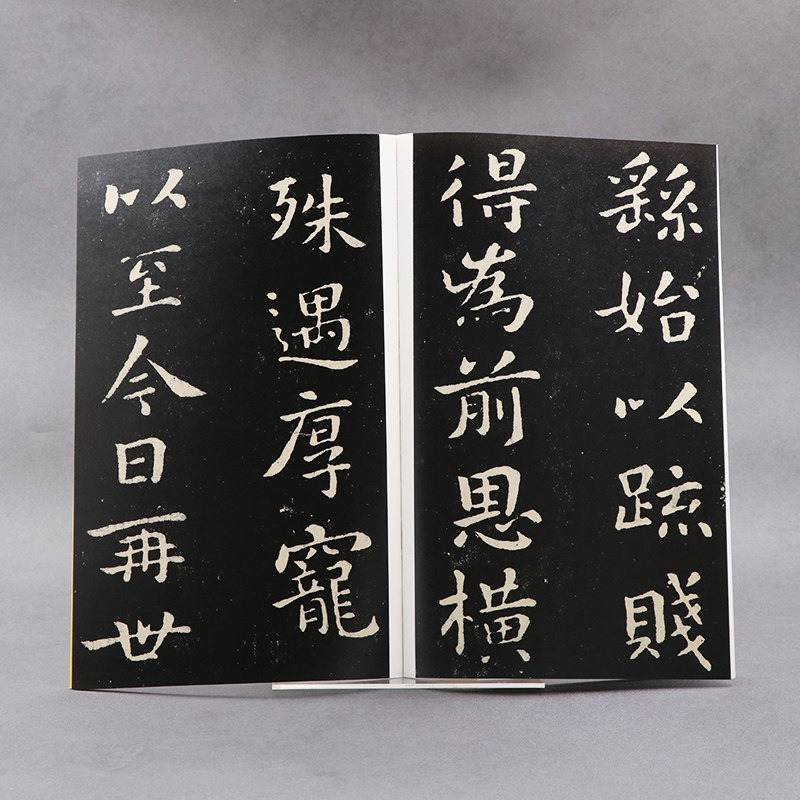 繇始以疏賤
得為前恩橫
殊遇厚寵
以至今日再世